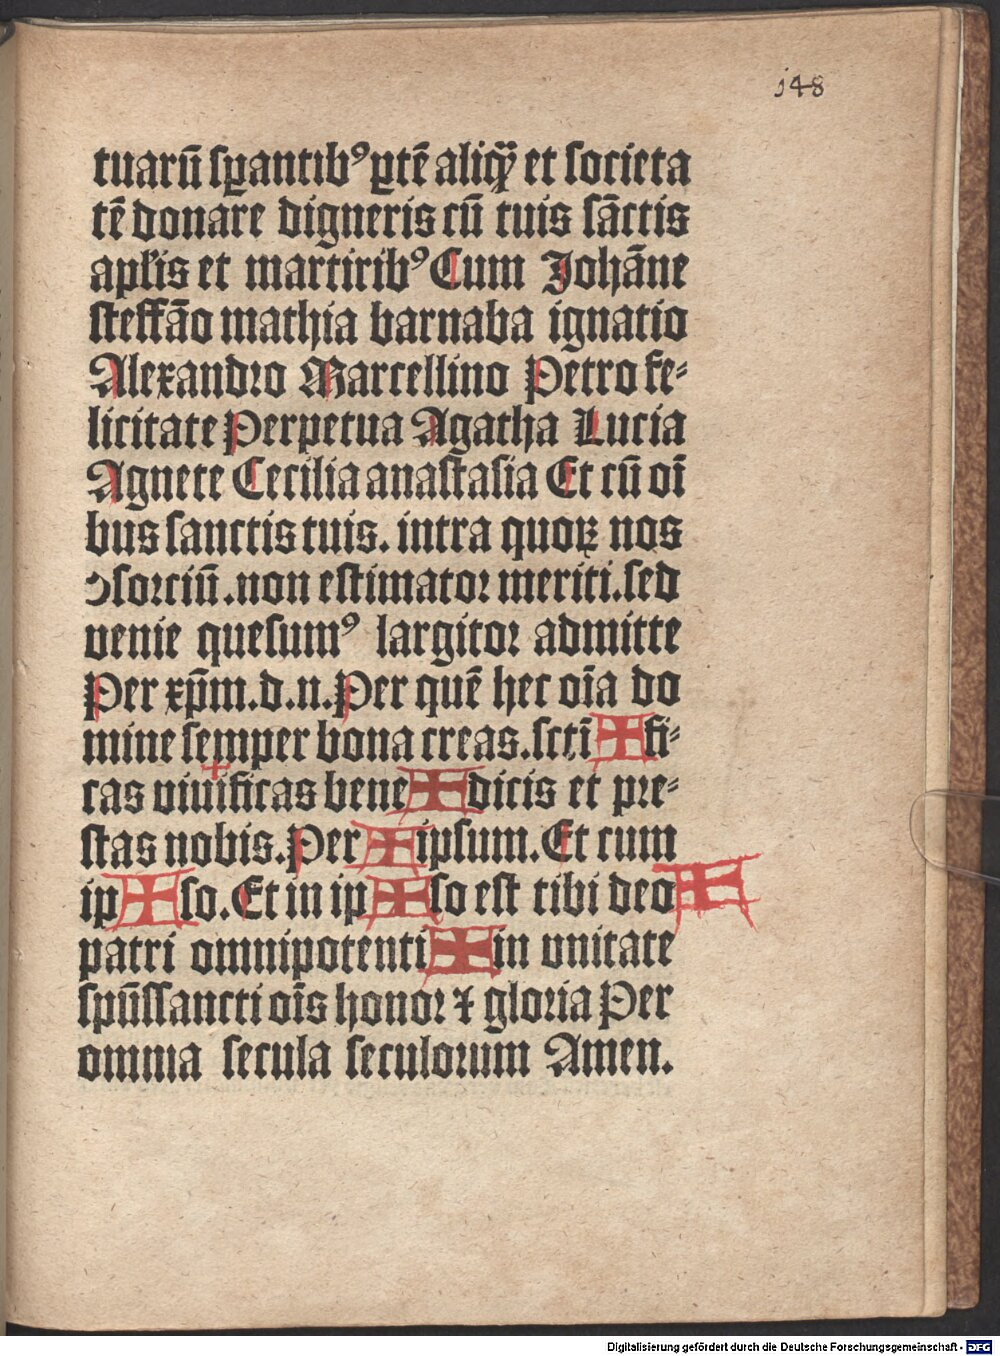 148
tuarū ſꝑantibꝰ ꝑtē aliqͣꝫ et ſocieta
tē donare digneris cū tuis ſāctis
apłis et martiribꝰ Cum Johāne
ſteffāo mathia barnaba ignatio
Alexandꝛo Marcellino Petro fe⸗
licitate Perpetua Agatha Lucia
Agnete Cecilia anaſtaſia Et cū oī
bus ſanctis tuis. intra quoꝝ nos
ↄſoꝛciū. non eſtimatoꝛ meriti. ſed
venie queſumꝰ largitoꝛ admitte
Per xp̄m. d. n. Per quē hec oīa do
mine ſemper bona creas. ſcti ✠ fi⸗
cas viuificas bene ✠ dicis et pꝛe⸗
ſtas nobis. Per ✠ ipſum. Et cum
ip ✠ ſo. Et in ip ✠ ſo eſt tibi deo ✠
patri omnipotenti ✠ in vnitate
ſpūſſancti oīs honoꝛ ⁊ gloꝛia Per
omnia ſecula ſeculoꝛum Amen.
Digitalisierung gefördert durch die Deutsche Forschungsgemeinschaft - DFG